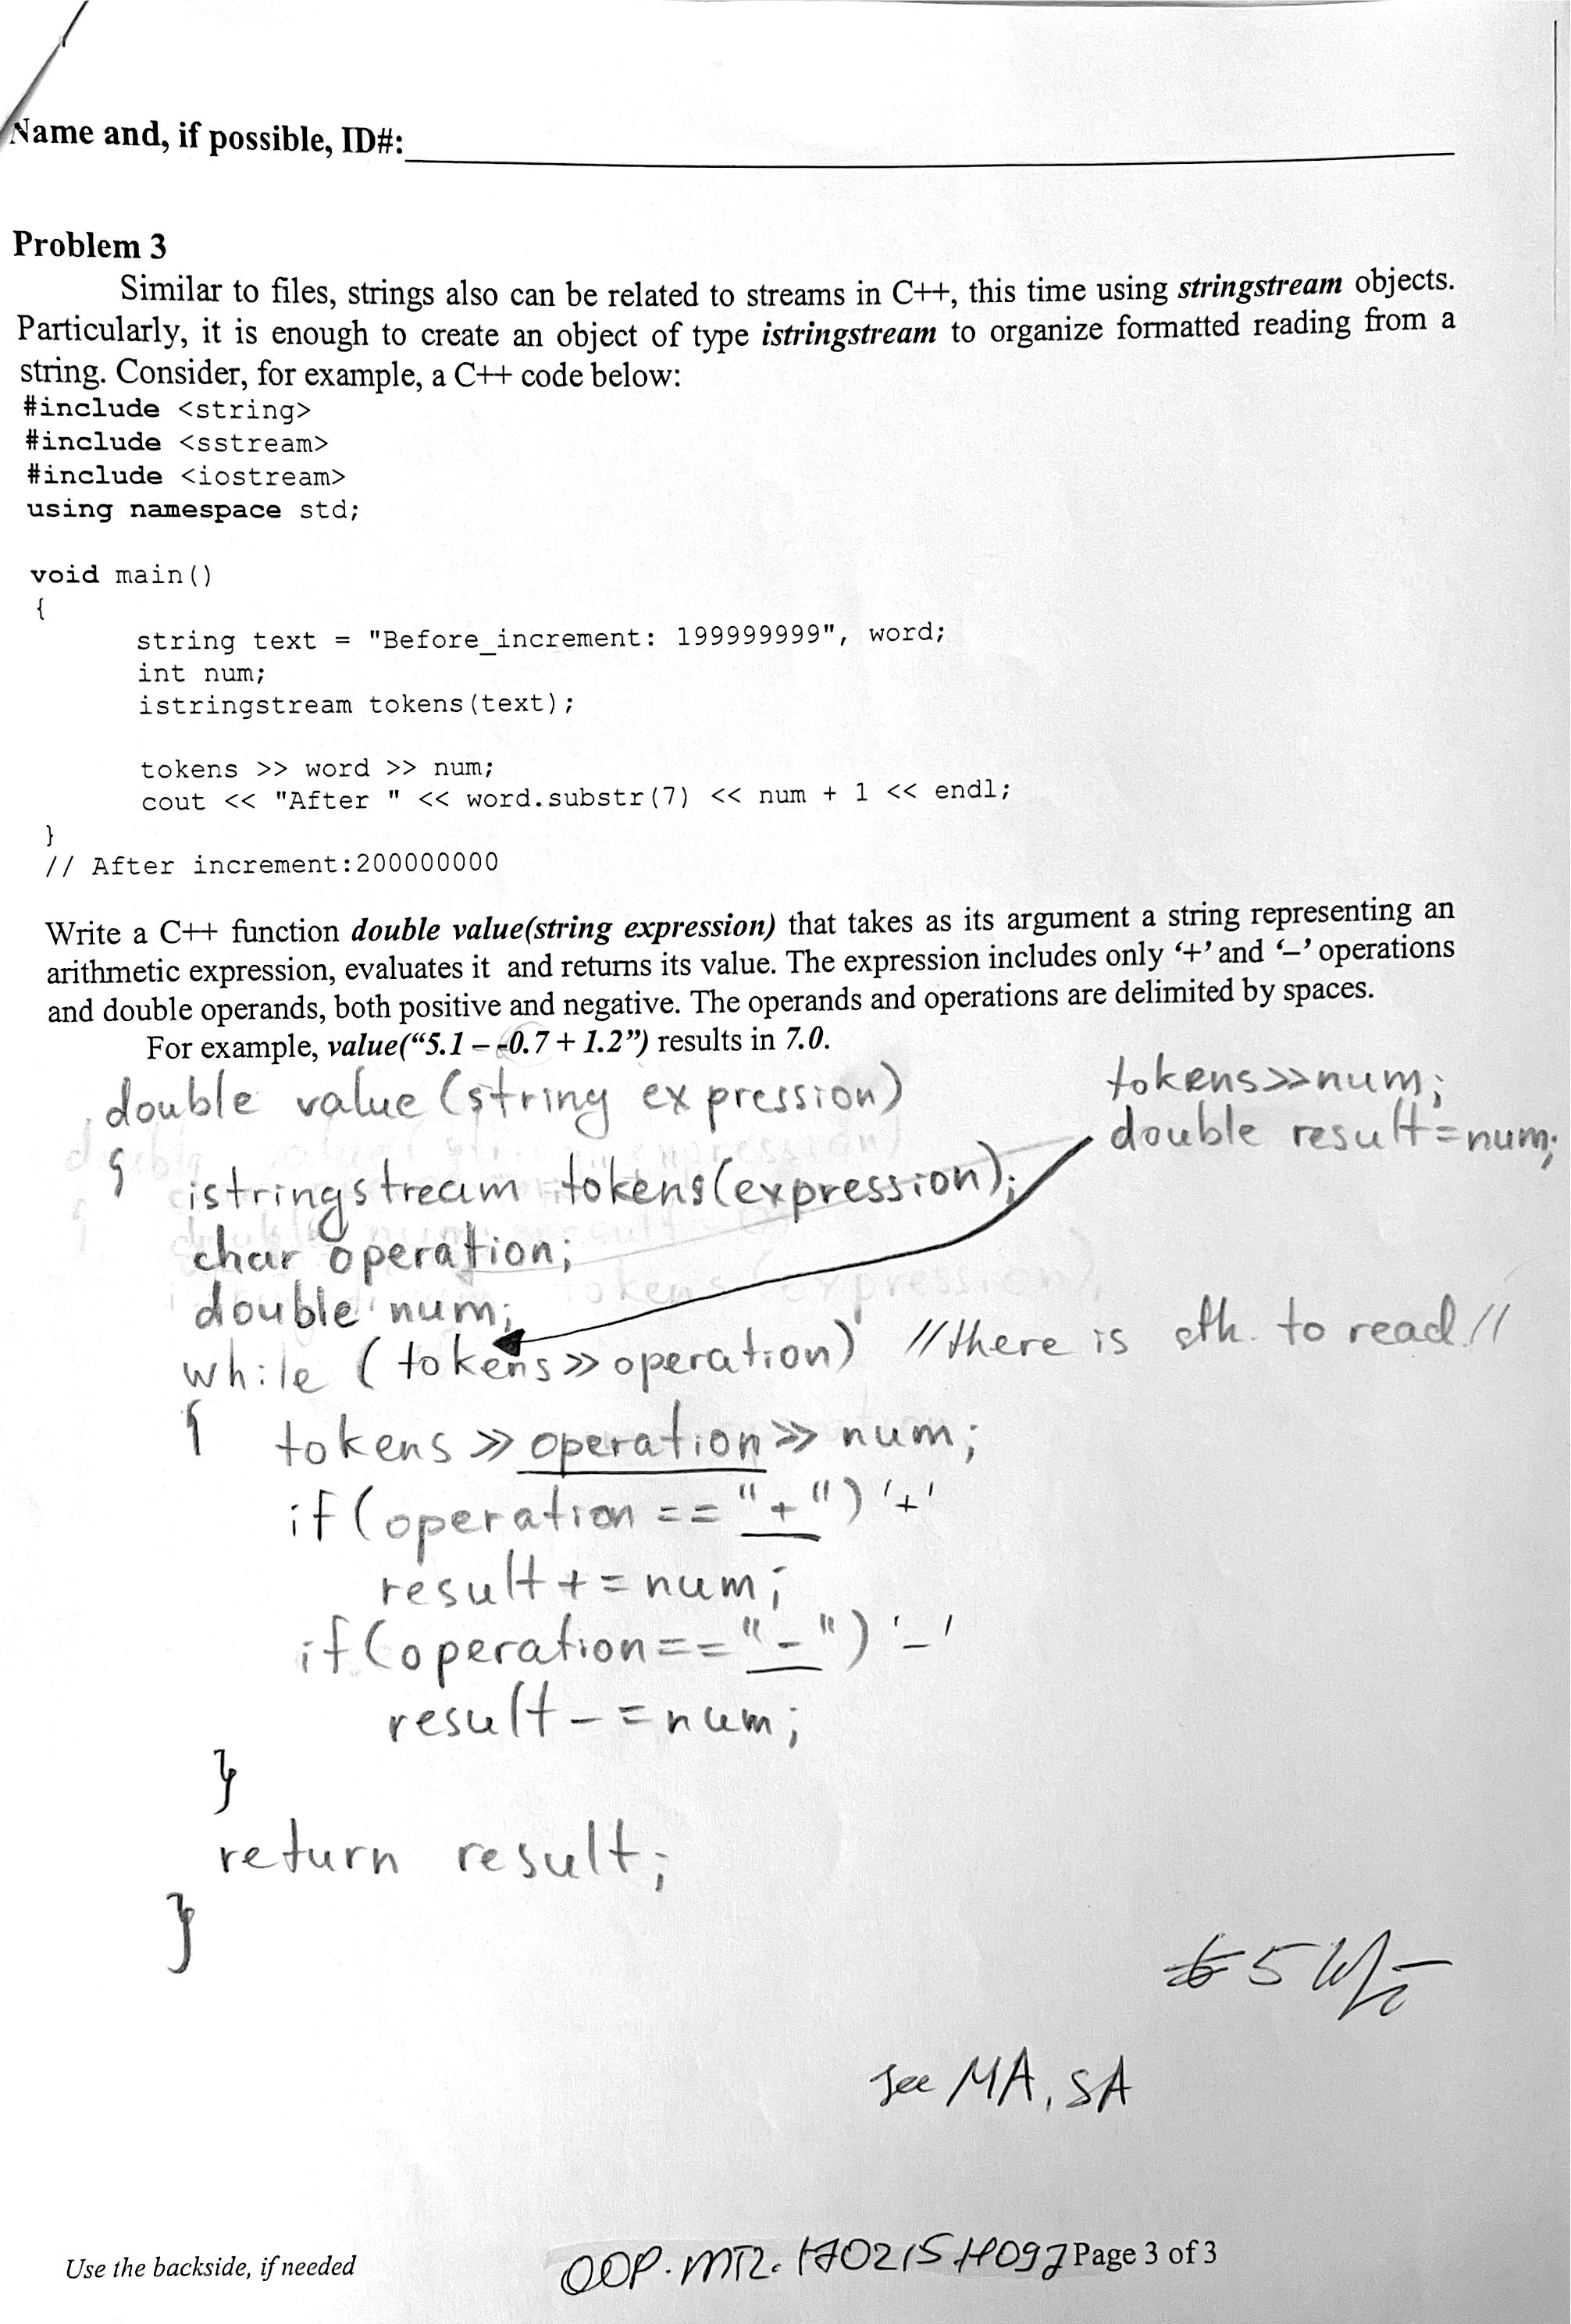 Name and, if possible, ID#:
Problem 3
Similar to files, strings also can be related to streams in C++, this time using stringstream objects.
Particularly, it is enough to create an object of type istringstream to organize formatted reading from a
string. Consider, for example, a C++ code below:
#include <string>
#include <sstream>
#include <iostream>
using namespace std;
void main()
{
string text = "Before_increment: 199999999", word;
int num;
istringstream tokens(text);
tokens >> word >> num;
cout << "After " << word.substr(7) << num + 1 << endl;
}
// After increment:200000000
Write a C++ function double value(string expression) that takes as its argument a string representing an
arithmetic expression, evaluates it and returns its value. The expression includes only ‘+’ and ‘–’ operations
and double operands, both positive and negative. The operands and operations are delimited by spaces.
For example, value(“5.1 – -0.7 + 1.2”) results in 7.0.
double value (string expression)
tokens>>num;
double result=num;
{ istringstream tokens(expression);
char operation;
double num;
while (tokens>>operation) //there is sth. to read //
{ tokens >> operation >> num;
if (operation == "+") '+'
result += num;
if (operation == "-") '-'
result -= num;
}
return result;
}
5
See MA, SA
Use the backside, if needed
Page 3 of 3